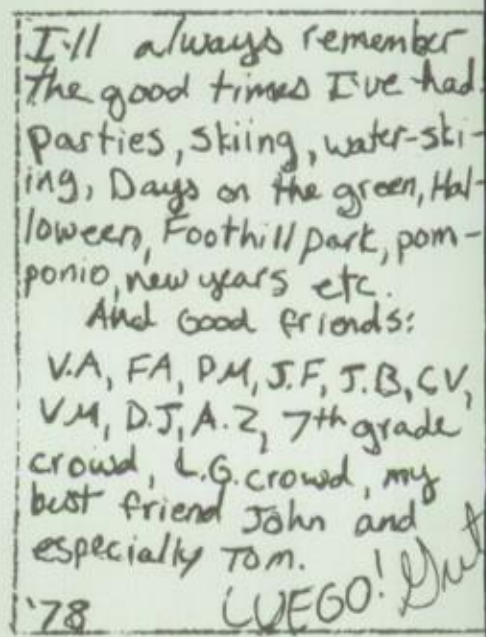 I'll always remember
the good times I've had.
parties, skiing, water-ski-
ing, Days on the green, Hal-
loween, Foothill park, pom-
ponio, new years etc.
And Good friends:
V.A, FA, P.M, J.F, J.B, CV,
V.M, D.J, A.Z, 7th grade
crowd, L.G. crowd, my
best friend John and
especially Tom.
'78 LUEGO!